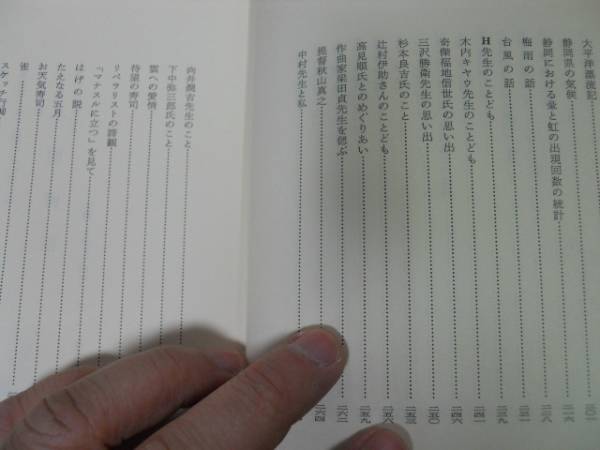 太平洋漂流記……二〇一
静岡県の気候……二一六
静岡における暈と虹の出現回数の統計……二二八
梅雨の話……二三一
台風の話……二三九
H先生のことども……二四一
木内キヤウ先生のことども……二四六
奇傑福地信世氏の思い出……二五〇
三沢勝衛先生の思い出……二五三
杉本良吉氏のこと
辻村伊助さんのことども……二五六
高見順氏とのめぐりあい……二五九
作曲家梁田貞先生を偲ぶ……二六二
提督秋山真之……二六四
中村先生と私
向井潤吉先生のこと
下中弥三郎氏のこと
雲への愛情
待望の寿司
リベラリストの諦観
「マナスルに立つ」を見て
はげの説
たえなる五月
お天気寿司
雀
スケッチ